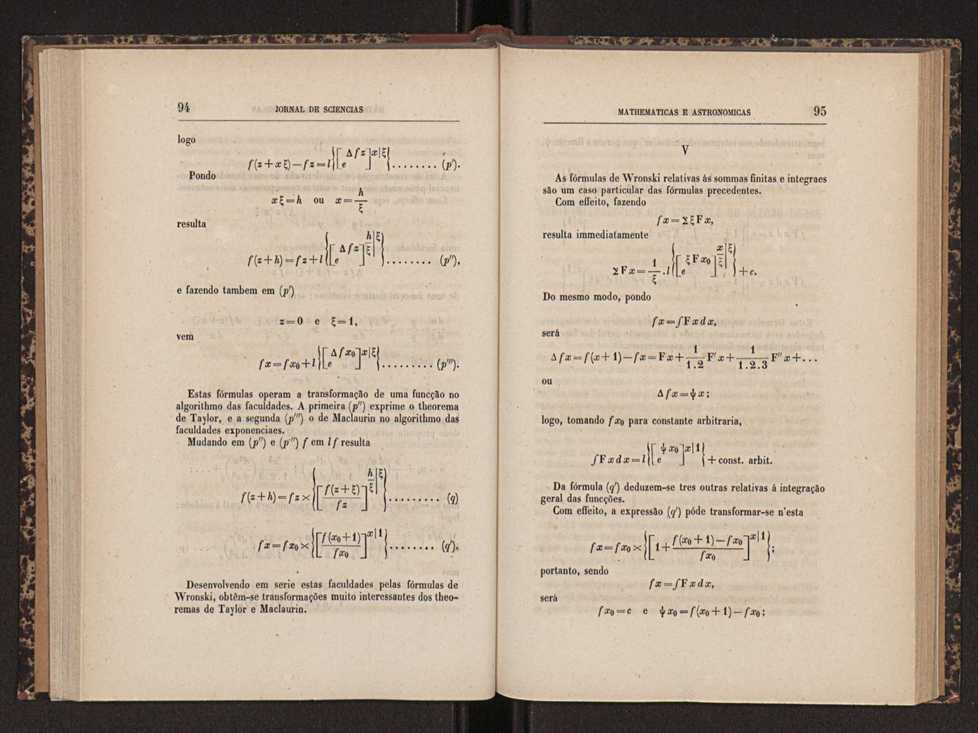 94 JORNAL DE SCIENCIAS
logo
f(z+xξ)—fz=l{[e^{Δfz}]^{x|ξ}}........ (p′).
Pondo
xξ=h ou x=h/ξ
resulta
f(z+h)=fz+l{[e^{Δfz}]^{h/ξ|ξ}}........ (p″),
e fazendo tambem em (p′)
z=0 e ξ=1,
vem
fx=fx₀+l{[e^{Δfx₀}]^{x|ξ}}......... (p‴).
Estas fórmulas operam a transformação de uma funcção no
algorithmo das faculdades. A primeira (p″) exprime o theorema
de Taylor, e a segunda (p‴) o de Maclaurin no algorithmo das
faculdades exponenciaes.
Mudando em (p″) e (p‴) f em lf resulta
f(z+h)=fz×{[f(z+ξ)/fz]^{h/ξ|ξ}}......... (q)
fx=fx₀×{[f(x₀+1)/fx₀]^{x|1}}........ (q′).
Desenvolvendo em serie estas faculdades pelas fórmulas de
Wronski, obtêm-se transformações muito interessantes dos theo-
remas de Taylor e Maclaurin.
MATHEMATICAS E ASTRONOMICAS 95
V
As fórmulas de Wronski relativas ás sommas finitas e integraes
são um caso particular das fórmulas precedentes.
Com effeito, fazendo
fx=ΣξFx,
resulta immediatamente
ΣFx=1/ξ.l{[e^{ξFx₀}]^{x/ξ|ξ}}+c.
Do mesmo modo, pondo
fx=∫Fxdx,
será
Δfx=f(x+1)—fx=Fx+1/1.2 F′x+1/1.2.3 F″x+...
ou
Δfx=ψx;
logo, tomando fx₀ para constante arbitraria,
∫Fxdx=l{[e^{ψx₀}]^{x|1}}+const. arbit.
Da fórmula (q′) deduzem-se tres outras relativas á integração
geral das funcções.
Com effeito, a expressão (q′) póde transformar-se n'esta
fx=fx₀×{[1+f(x₀+1)—fx₀/fx₀]^{x|1}};
portanto, sendo
fx=∫Fxdx,
será
fx₀=c e ψx₀=f(x₀+1)—fx₀;